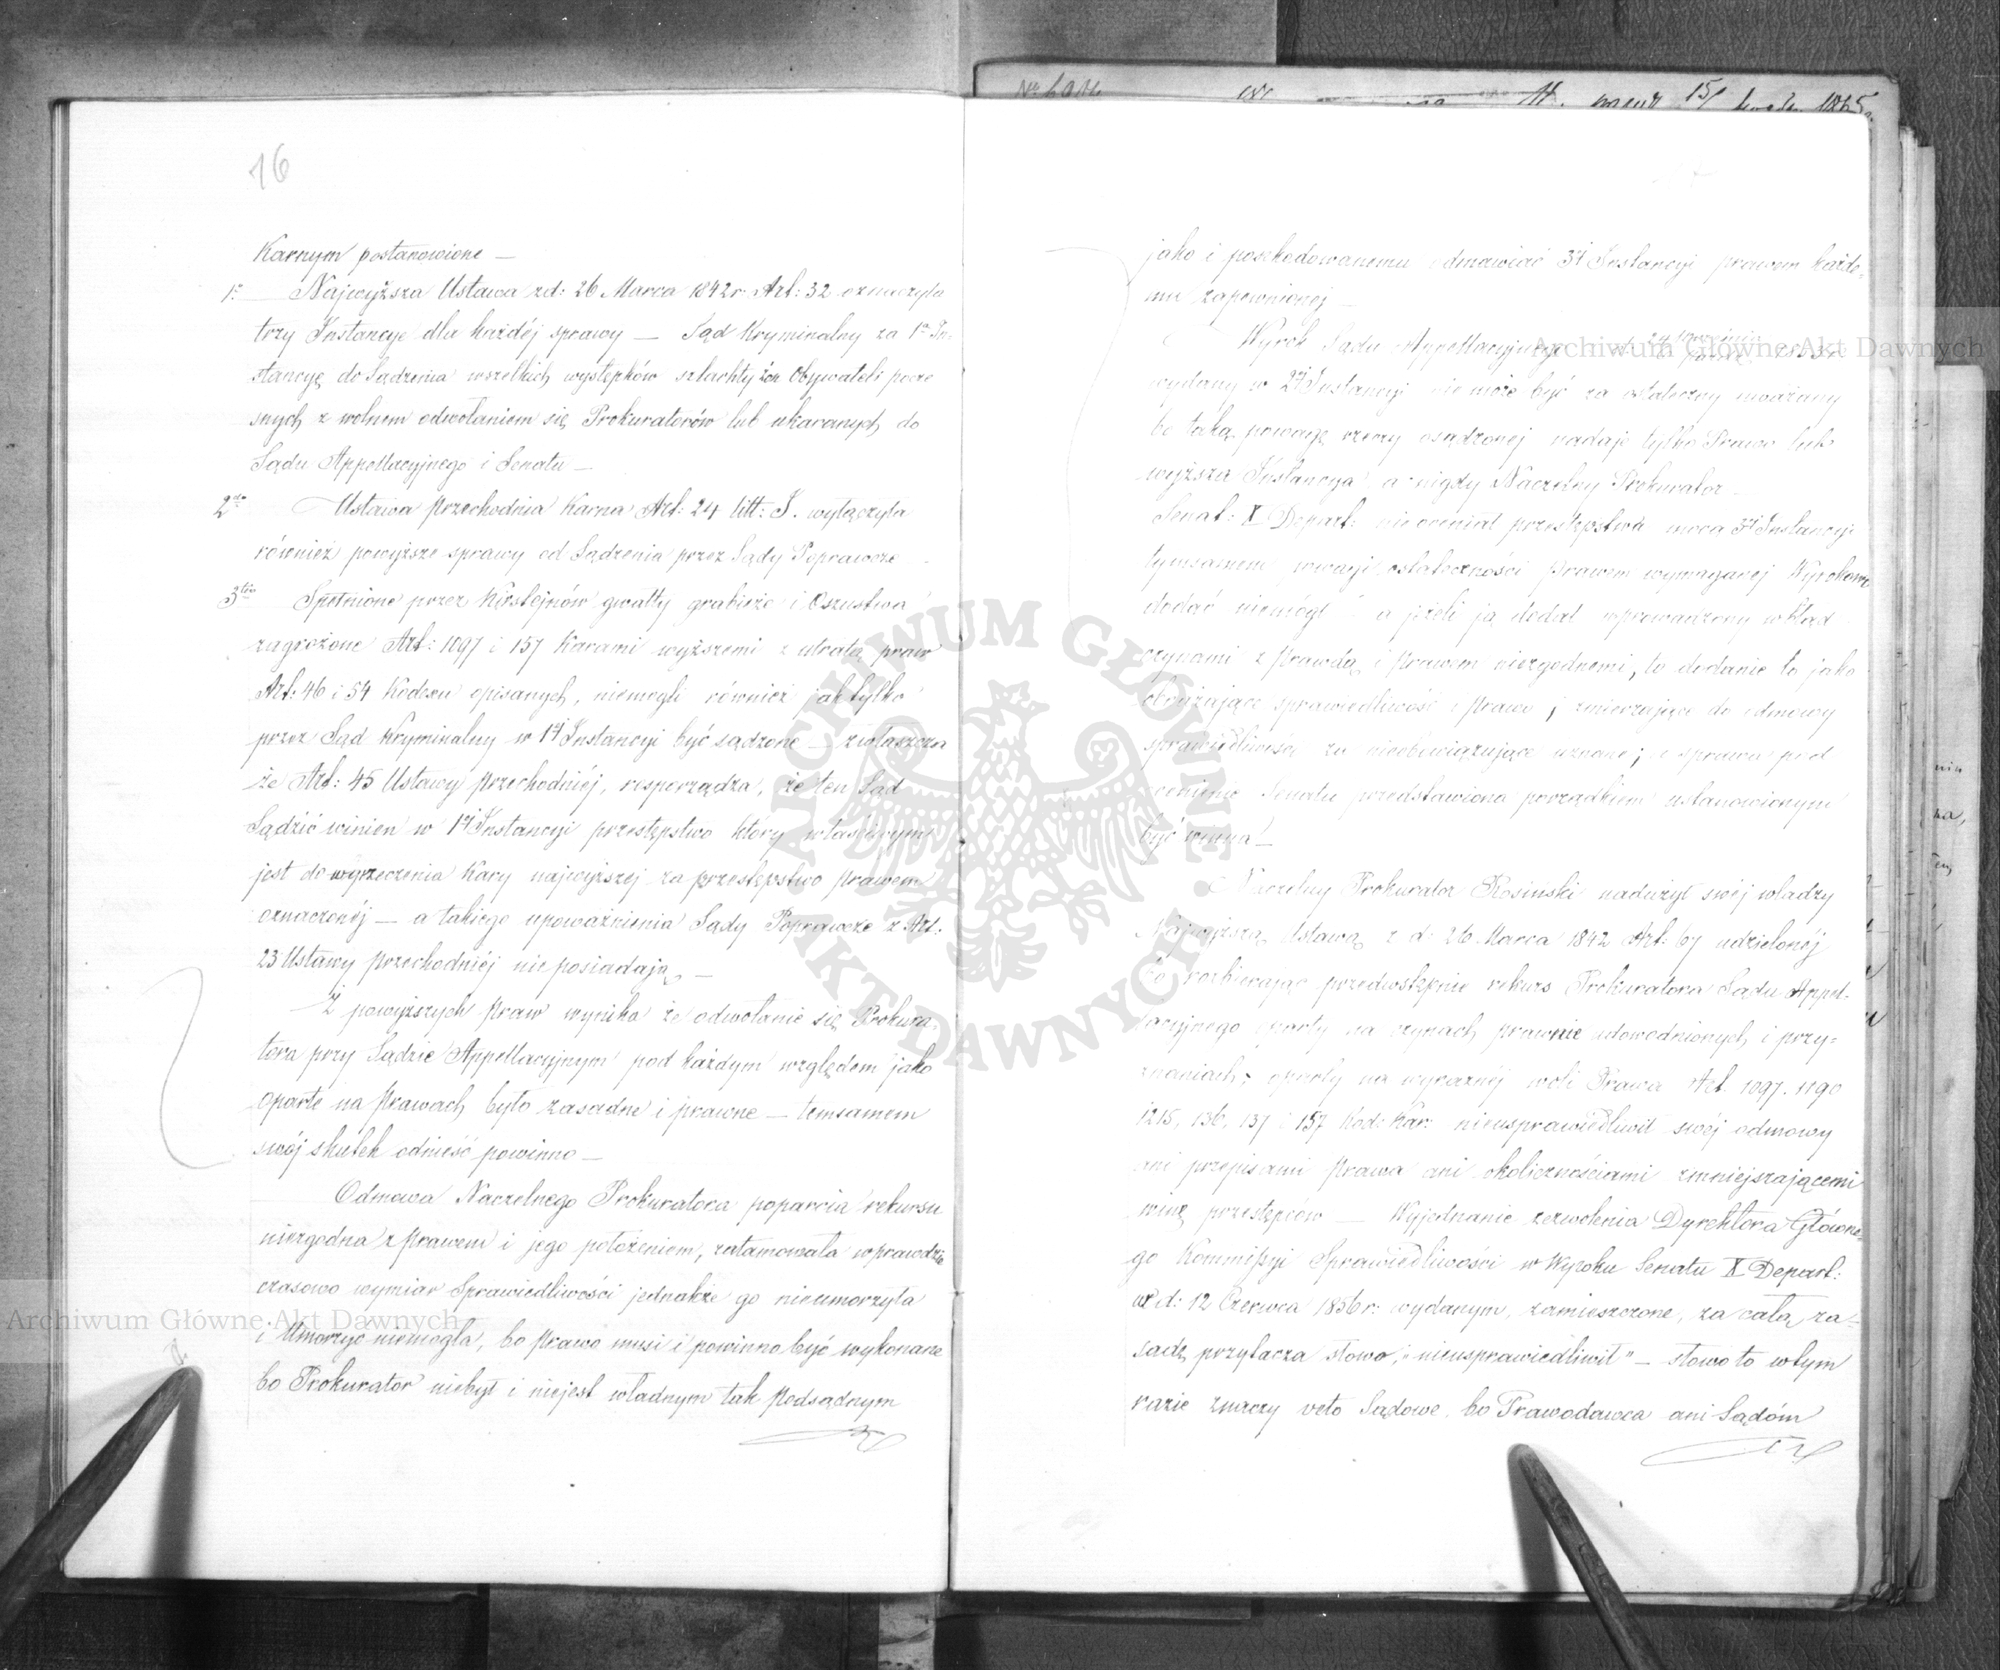 16
Karnym postanowione —
1º Najwyższa Ustawa zd: 26 Marca 1842 r. Art: 32 oznaczyła
trzy Instancye dla każdéj sprawy — Sąd Kryminalny za 1ą In-
stancyę do Sądzenia wszelkich występków szlachty Obywateli
z wolnem odwołaniem się Prokuratorów lub ukaranych do
Sądu Appellacyjnego i Senatu —
2do Ustawa Przechodnia Karna Art: 24 litt: I. wyłączyła
również powyższe sprawy od Sądzenia przez Sądy Poprawcze
3tio Spełnione przez Kirstejnów gwałty grabieże i Oszustwa
zagrożone Art: 1097 i 157 Karami wyższemi z utratą praw
Art: 46 i 54 Kodexu opisanych, niemogli również jak tylko
przez Sąd Kryminalny w 1éj Instancyi być sądzone — zwłaszcza
że Art: 45 Ustawy Przechodniéj, rosporządza, że ten Sąd
Sądzić winien w 1éj Instancyi przestępstwo który właściwym
jest do wyrzeczenia Kary najwyższej za przestępstwo Prawem
oznaczonéj — a takiego upoważnienia Sądy Poprawcze z Art:
23 Ustawy Przechodniéj nie posiadają —
Z powyższych Praw wynika że odwołanie się Prokura-
tora przy Sądzie Appellacyjnym pod każdym względem jako
oparte na Prawach było zasadne i prawne — temsamem
swój skutek odnieść powinno —
Odmowa Naczelnego Prokuratora poparcia rekursu
niezgodna z Prawem i jego położeniem, zatamowała wprawdzie
czasowo wymiar Sprawiedliwości jednakże go nieumorzyła
i Umorzyć niemogła, bo Prawo musi i powinno być wykonane
bo Prokurator niebył i niejest władnym tak Podsądnym
jako i poszkodowanemu odmawiać 3éj Instancyi prawem każde-
mu zapewnionej —
Wyrok Sądu Appellacyjnego
wydany w 2éj Instancyi nie może być za ostateczny uważany
bo taką powagę rzeczy osądzonej nadaje tylko Prawo lub
wyższa Instancya a nigdy Naczelny Prokurator —
Senat: X Depart: nie oceniał przestępstwa mocą 3éj Instancyi
tymsamem powagi ostateczności Prawem wymaganej Wyrokowi
dodać niemógł — a jeżeli ją dodał wprowadzony w błąd
czynami z Prawdą i Prawem niezgodnemi, to dodanie to jako
obrażające sprawiedliwość i Prawo, zmierzające do odmowy
sprawiedliwości za nieobowiązujące uznane; a sprawa pod
ocenienie Senatu przedstawiona porządkiem ustanowionym
być winna —
Naczelny Prokurator Kosinski nadużył swéj władzy
Najwyższą Ustawą z d: 26 Marca 1842 Art: 67 udzielonéj
bo rozbierając przedwstępnie rekurs Prokuratora Sądu Appel-
lacyjnego oparty na czynach prawnie udowodnionych i przy-
znaniach; oparty na wyraznéj woli Prawa Art. 1097. 1190
1215, 136, 137 i 157 Kod: Kar: nieusprawiedliwił swéj odmowy
ani przepisami Prawa ani okolicznościami zmniejszającemi
winę przestępców — Wyjednanie zezwolenia Dyrektora Główne-
go Kommissyi Sprawiedliwości w Wyroku Senatu X Depart:
d: 12 Czerwca 1856 r: wydanym, zamieszczone, za całą za-
sadę przytacza słowo; "nieusprawiedliwił" — słowo to w tym
razie znaczy veto Sądowe, bo Prawodawca ani Sądóm
Archiwum Główne Akt Dawnych
Archiwum Główne Akt Dawnych
ARCHIWUM GŁÓWNE AKT DAWNYCH